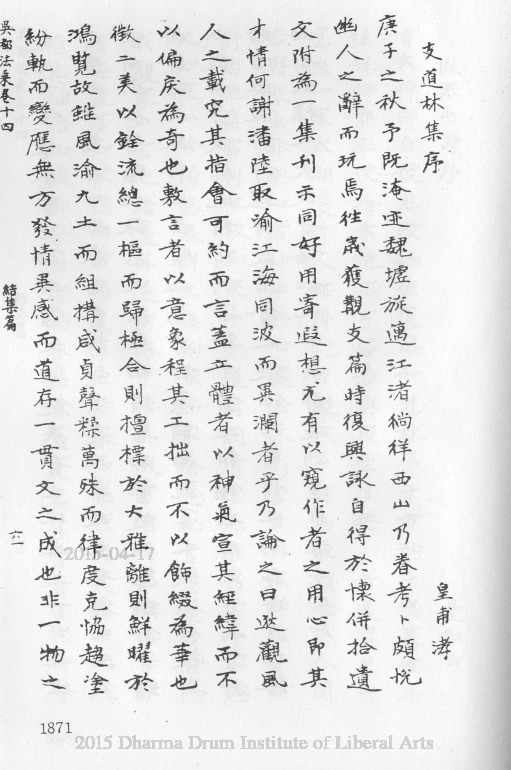 支道林集序
皇甫涍
庚子之秋予既淹迹魏墟旋邁江渚徜徉西山乃眷考卜頗悅
幽人之辭而玩焉往歲獲覩支篇時復興詠自得於懷併拾遺
文附為一集刊示同好用寄遐想尤有以窺作者之用心即其
才情何謝潘陸取渝江海同波而異瀾者乎乃論之曰逖觀風
人之載究其指會可約而言蓋立體者以神氣宣其經緯而不
以偏戾為奇也敷言者以意象程其工拙而不以飾綴為華也
徵二美以銓流總一樞而歸極合則檀標於大雅離則鮮曜於
鴻覽故雖風渝九土而組搆咸貞聲糅萬殊而律度克恊趨塗
紛軌而變應無方發情異感而道存一貫文之成也非一物之
吳都法乘卷十四
結集篇
六一
1871
2015-04-17
2015 Dharma Drum Institute of Liberal Arts